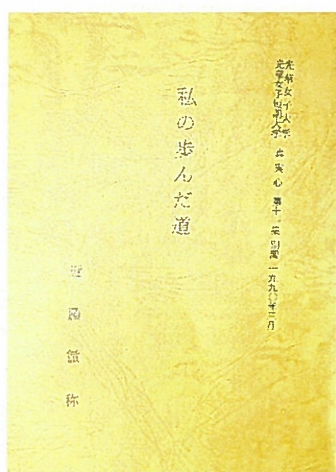 光華女子大学
光華女子短期大学
真実心 第十一集 別冊 一九九〇年三月
私の歩んだ道
近藤徹称